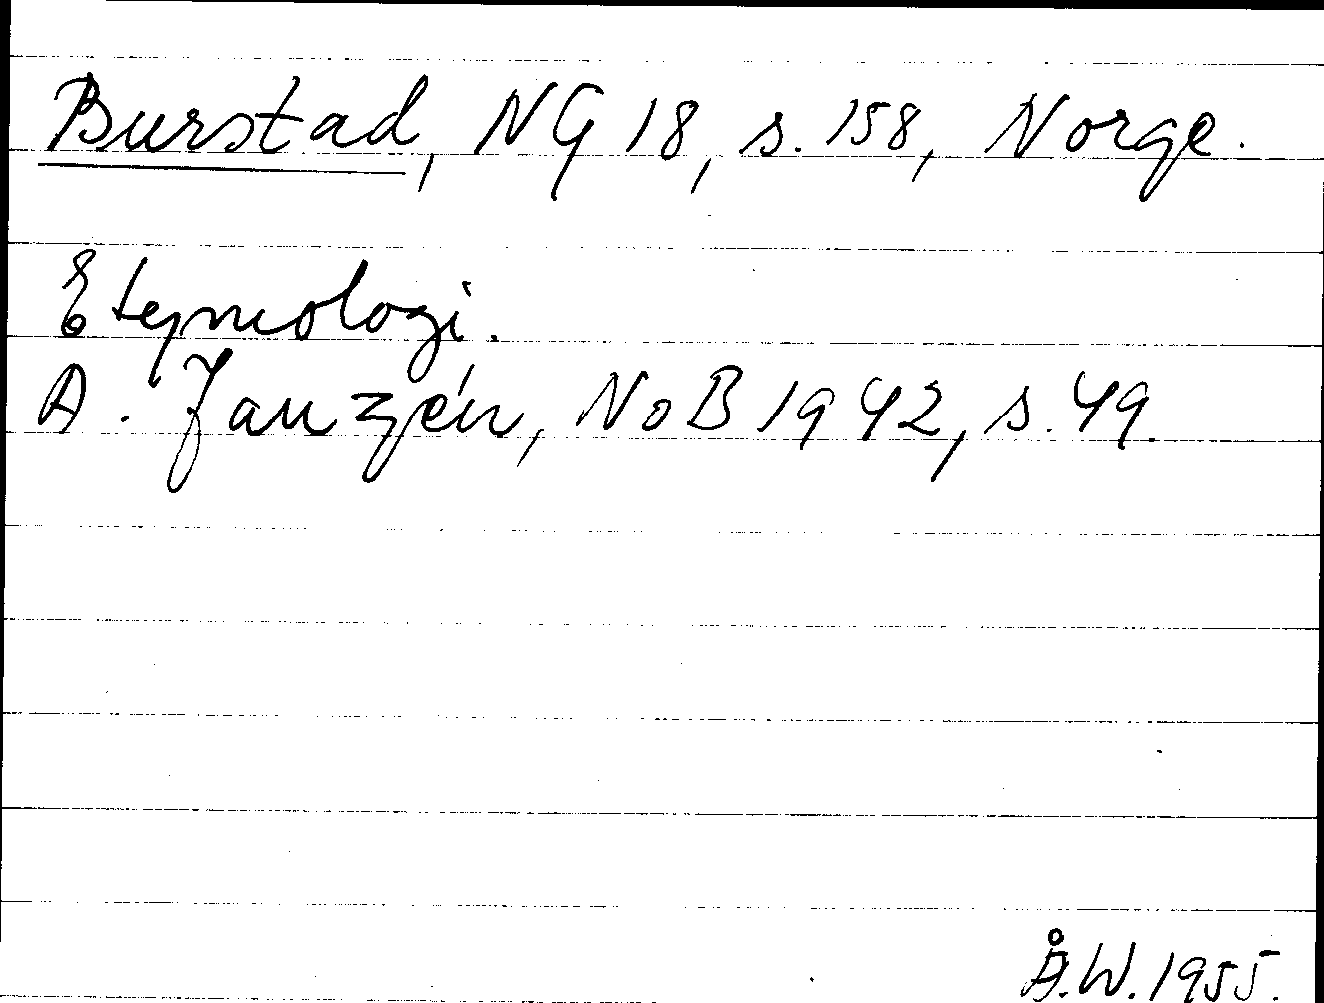 Burstad, NG 18, s. 158, Norge.
Etymologi.
A. Janzén, NoB 1942, s. 49.
Å.W. 1955.